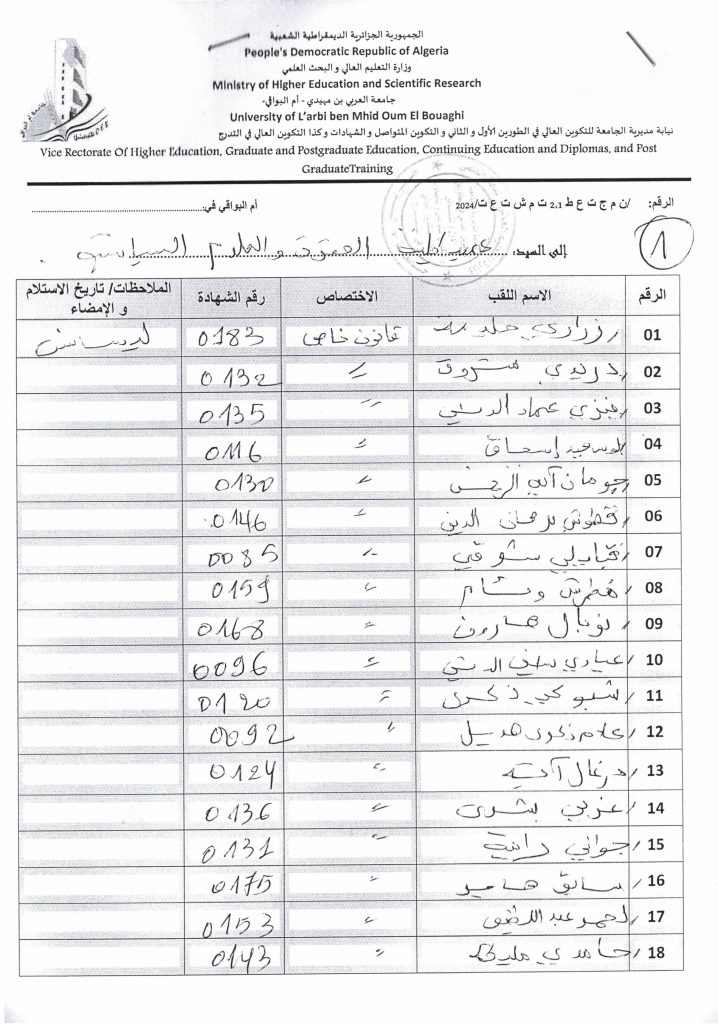 الجمهورية الجزائرية الديمقراطية الشعبية
People's Democratic Republic of Algeria
وزارة التعليم العالي و البحث العلمي
Ministry of Higher Education and Scientific Research
جامعة العربي بن مهيدي - أم البواقي-
University of L'arbi ben Mhid Oum El Bouaghi
نيابة مديرية الجامعة للتكوين العالي في الطورين الأول و الثاني و التكوين المتواصل و الشهادات و كذا التكوين العالي في التدرج
Vice Rectorate Of Higher Education, Graduate and Postgraduate Education, Continuing Education and Diplomas, and Post
GraduateTraining
الرقم: /ن م ج ت ع ط 2،1 ت م ش ت ع ت/2024 أم البواقي في:
1
إلى السيد: عميد كلية الحقوق و العلوم السياسية
الرقم الاسم اللقب الاختصاص رقم الشهادة الملاحظات/ تاريخ الاستلام و الإمضاء
01 زراري قانون خاص 0183 ليسانس
02 دريدي 〃 0132
03 عماد الدين 〃 0135
04 بوسعيد إسحاق 〃 0116
05 0130 〃
06 برهان الدين 〃 0146
07 شوقي 〃 0085
08 وسام 〃 0159
09 نوبال هارون 〃 0168
10 عبادي سيف الدين 〃 0096
11 ذكرى 〃 0120
12 علام ذكرى هديل 〃 0092
13 درغال آسية 〃 0124
14 عزبي بشرى 〃 0136
15 جواني رانية 〃 0131
16 سابق 〃 0175
17 لحمر عبد اللطيف 〃 0153
18 حامدي مليكة 〃 0143